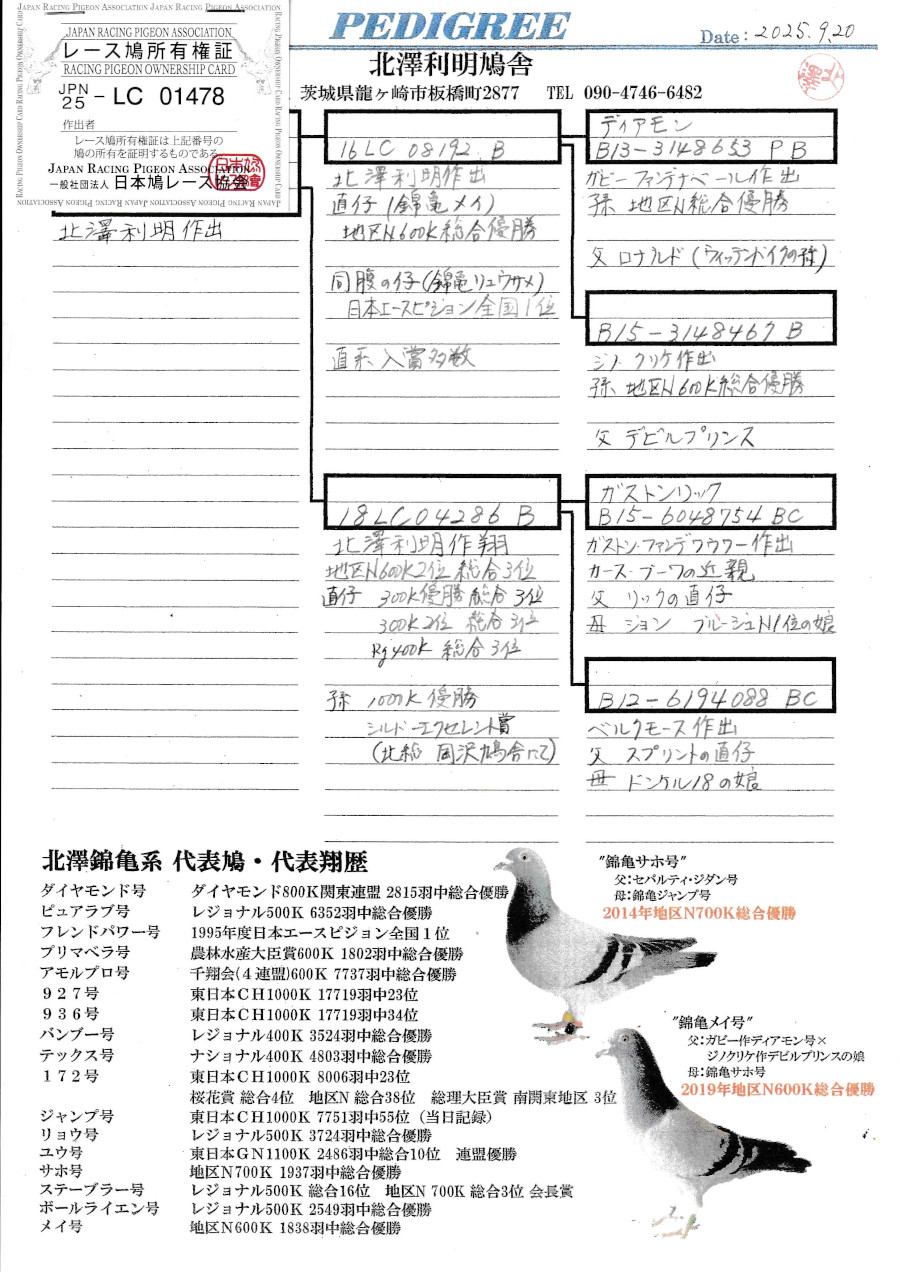 JAPAN RACING PIGEON ASSOCIATION JAPAN RACING PIGEON ASSOCIATION
JAPAN RACING PIGEON ASSOCIATION
レース鳩所有権証
RACING PIGEON OWNERSHIP CARD
JPN
25 - LC 01478
作出者
レース鳩所有権証は上記番号の
鳩の所有を証明するものである
JAPAN RACING PIGEON ASSOCIATION
一般社団法人 日本鳩レース協会
PEDIGREE
Date: 2025.9.20
北澤利明鳩舎
茨城県龍ヶ崎市板橋町2877 TEL 090-4746-6482
北澤利明作出
16LC 08192 B
北澤利明作出
直仔(錦亀メイ)
地区N600K総合優勝
同腹の仔(錦亀リュウサメ)
日本エースピジョン全国1位
直系入賞多数
18LC04286 B
北澤利明作翔
地区N600K2位 総合3位
直仔 300K優勝 総合3位
300K2位 総合3位
Rg400K 総合3位
孫 1000K優勝
シルドーエクセレント賞
(北総 岡沢鳩舎にて)
ディアモン
B13-3148653 PB
ガビーファンデナベール作出
孫 地区N総合優勝
父 ロナルド(ウィッテンドイクの孫)
B15-3148467 B
ジノ・クリケ作出
孫 地区N600K総合優勝
父 デビルプリンス
ガストンリック
B15-6048754 BC
ガストン・ファンデフウワー作出
カース・ブーワの近親
父 リックの直仔
母 ジョン ブルージュN1位の娘
B12-6194088 BC
ベルクモース作出
父 スプリントの直仔
母 ドンケル18の娘
北澤錦亀系 代表鳩・代表翔歴
ダイヤモンド号 ダイヤモンド800K関東連盟 2815羽中総合優勝
ピュアラブ号 レジョナル500K 6352羽中総合優勝
フレンドパワー号 1995年度日本エースピジョン全国1位
プリマベラ号 農林水産大臣賞600K 1802羽中総合優勝
アモルプロ号 千翔会(4連盟)600K 7737羽中総合優勝
927号 東日本CH1000K 17719羽中23位
936号 東日本CH1000K 17719羽中34位
バンブー号 レジョナル400K 3524羽中総合優勝
テックス号 ナショナル400K 4803羽中総合優勝
172号 東日本CH1000K 8006羽中23位
桜花賞 総合4位 地区N 総合38位 総理大臣賞 南関東地区 3位
ジャンプ号 東日本CH1000K 7751羽中55位(当日記録)
リョウ号 レジョナル500K 3724羽中総合優勝
ユウ号 東日本GN1100K 2486羽中総合10位 連盟優勝
サホ号 地区N700K 1937羽中総合優勝
ステーブラー号 レジョナル500K 総合16位 地区N 700K 総合3位 会長賞
ボールライエン号 レジョナル500K 2549羽中総合優勝
メイ号 地区N600K 1838羽中総合優勝
"錦亀サホ号"
父:セバルティ・ジダン号
母:錦亀ジャンプ号
2014年地区N700K総合優勝
"錦亀メイ号"
父:ガビー作ディアモン号×
ジノクリケ作デビルプリンスの娘
母:錦亀サホ号
2019年地区N600K総合優勝